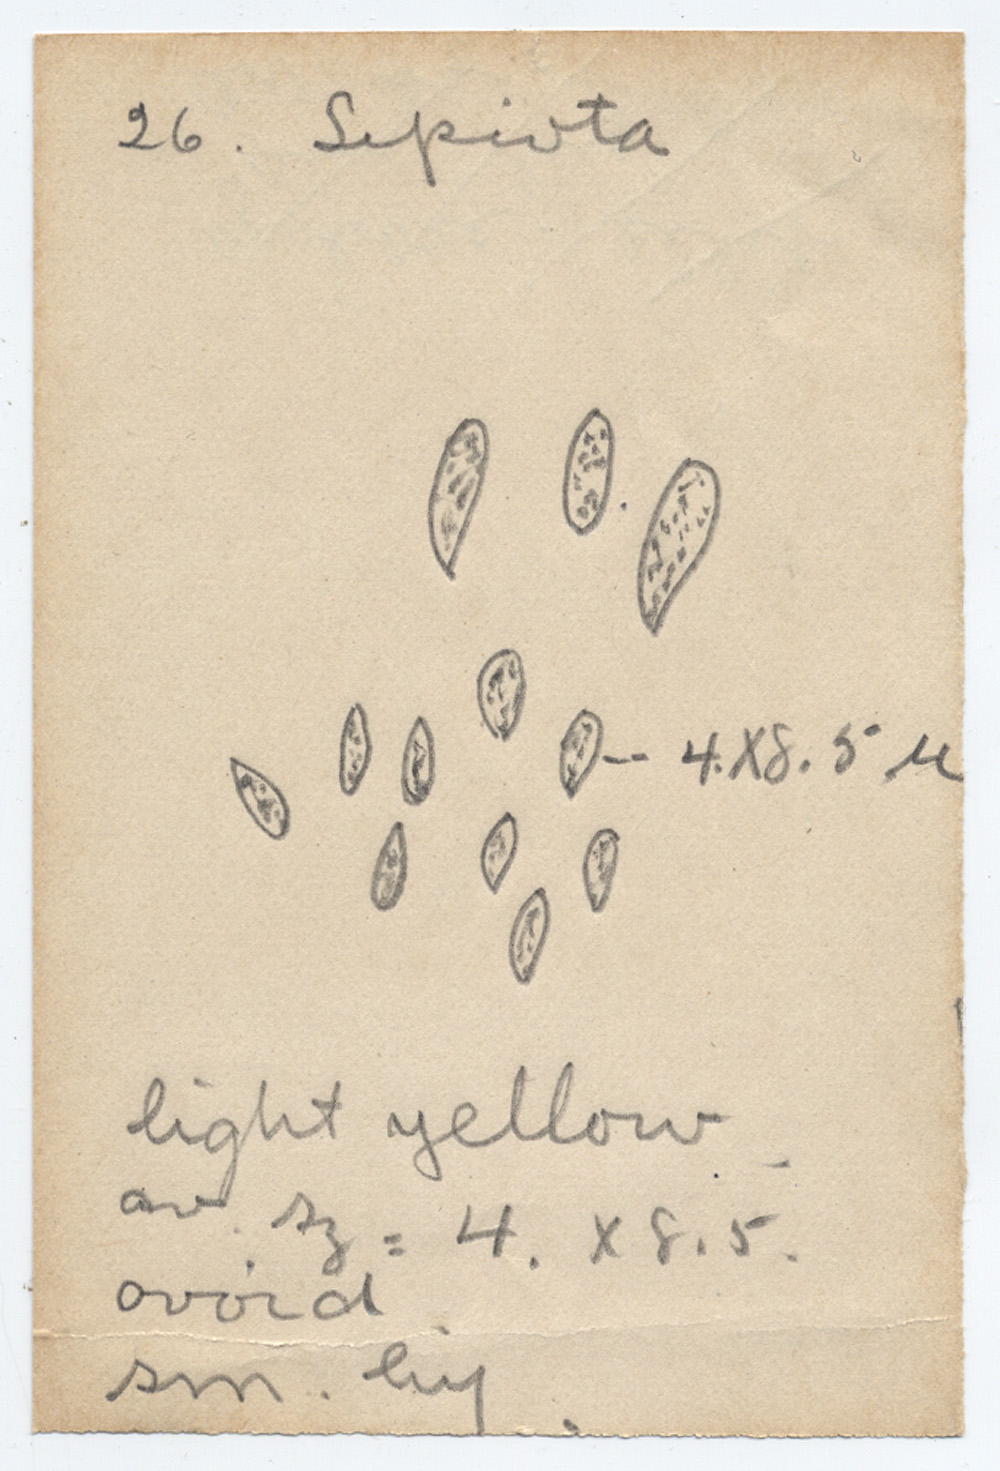 26. Lepiota
4. X 8.5 µ
light yellow
av. sz = 4. X 8.5.
ovoid
sm.